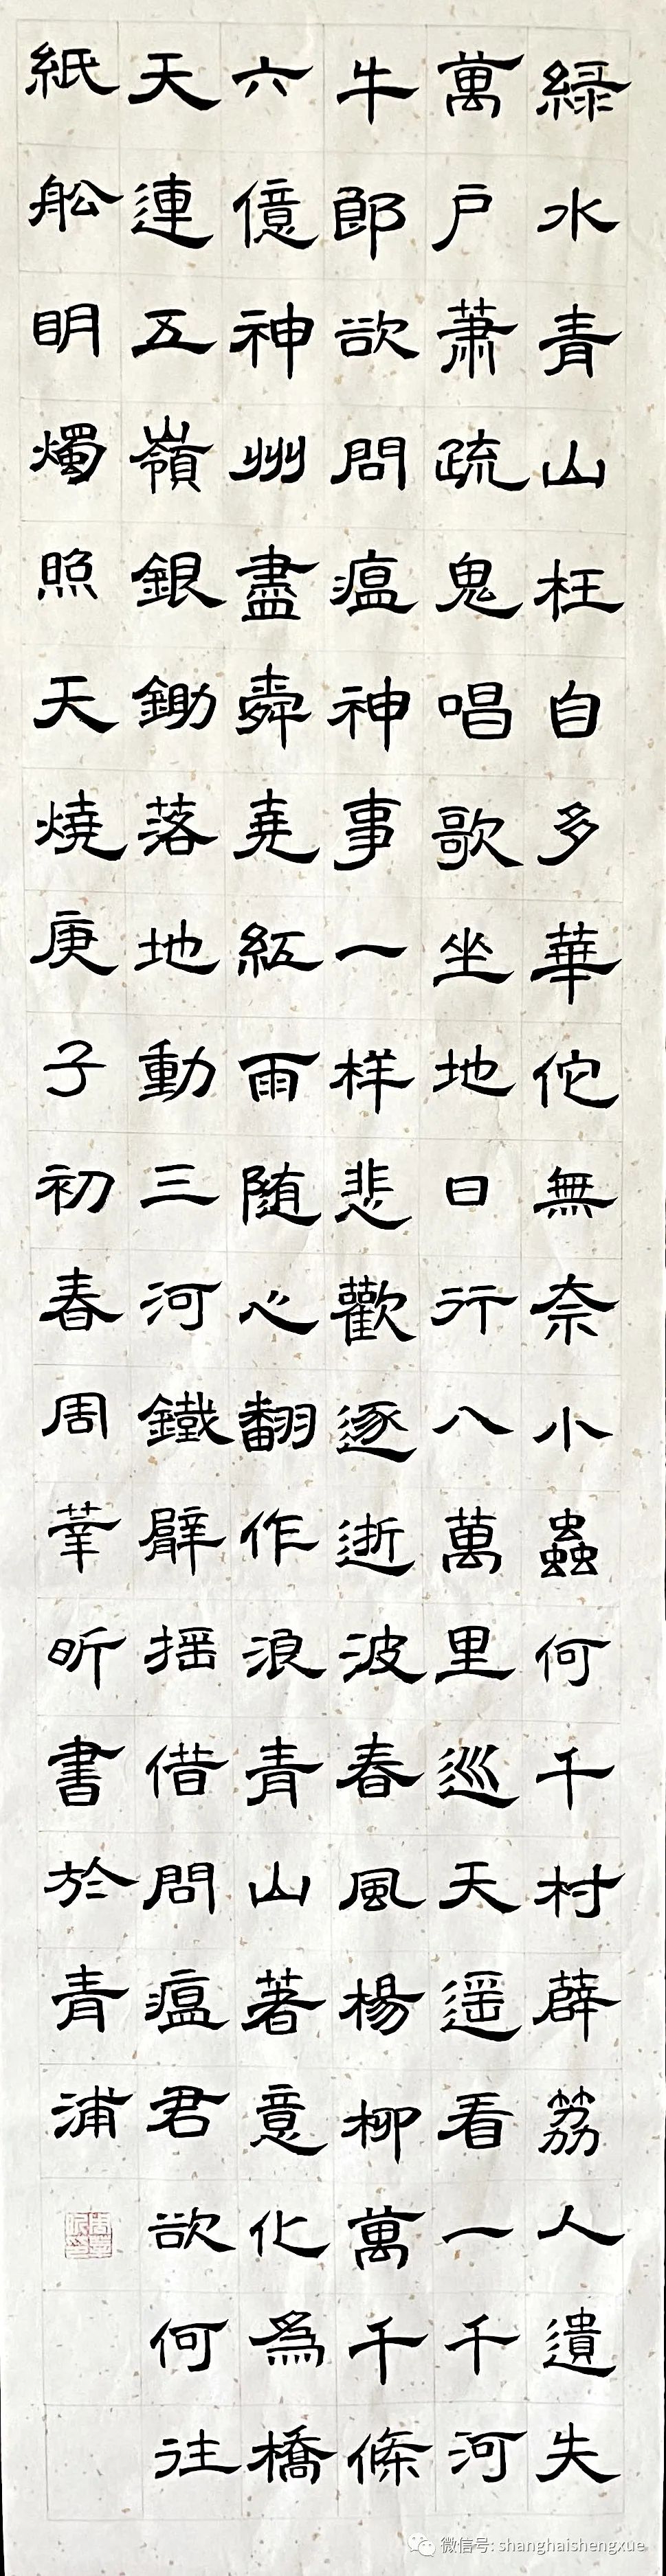 緑水青山枉自多華佗無奈小蟲何千村薜荔人遺失
萬户蕭疏鬼唱歌坐地日行八萬里巡天遥看一千河
牛郎欲問瘟神事一样悲歡逐逝波春風楊柳萬千條
六億神州盡舜尭紅雨随心翻作浪青山著意化為橋
天連五嶺銀鋤落地動三河鐵臂摇借問瘟君欲何往
紙舩明燭照天燒庚子初春周莘昕書於青浦
微信号: shanghaishengxue